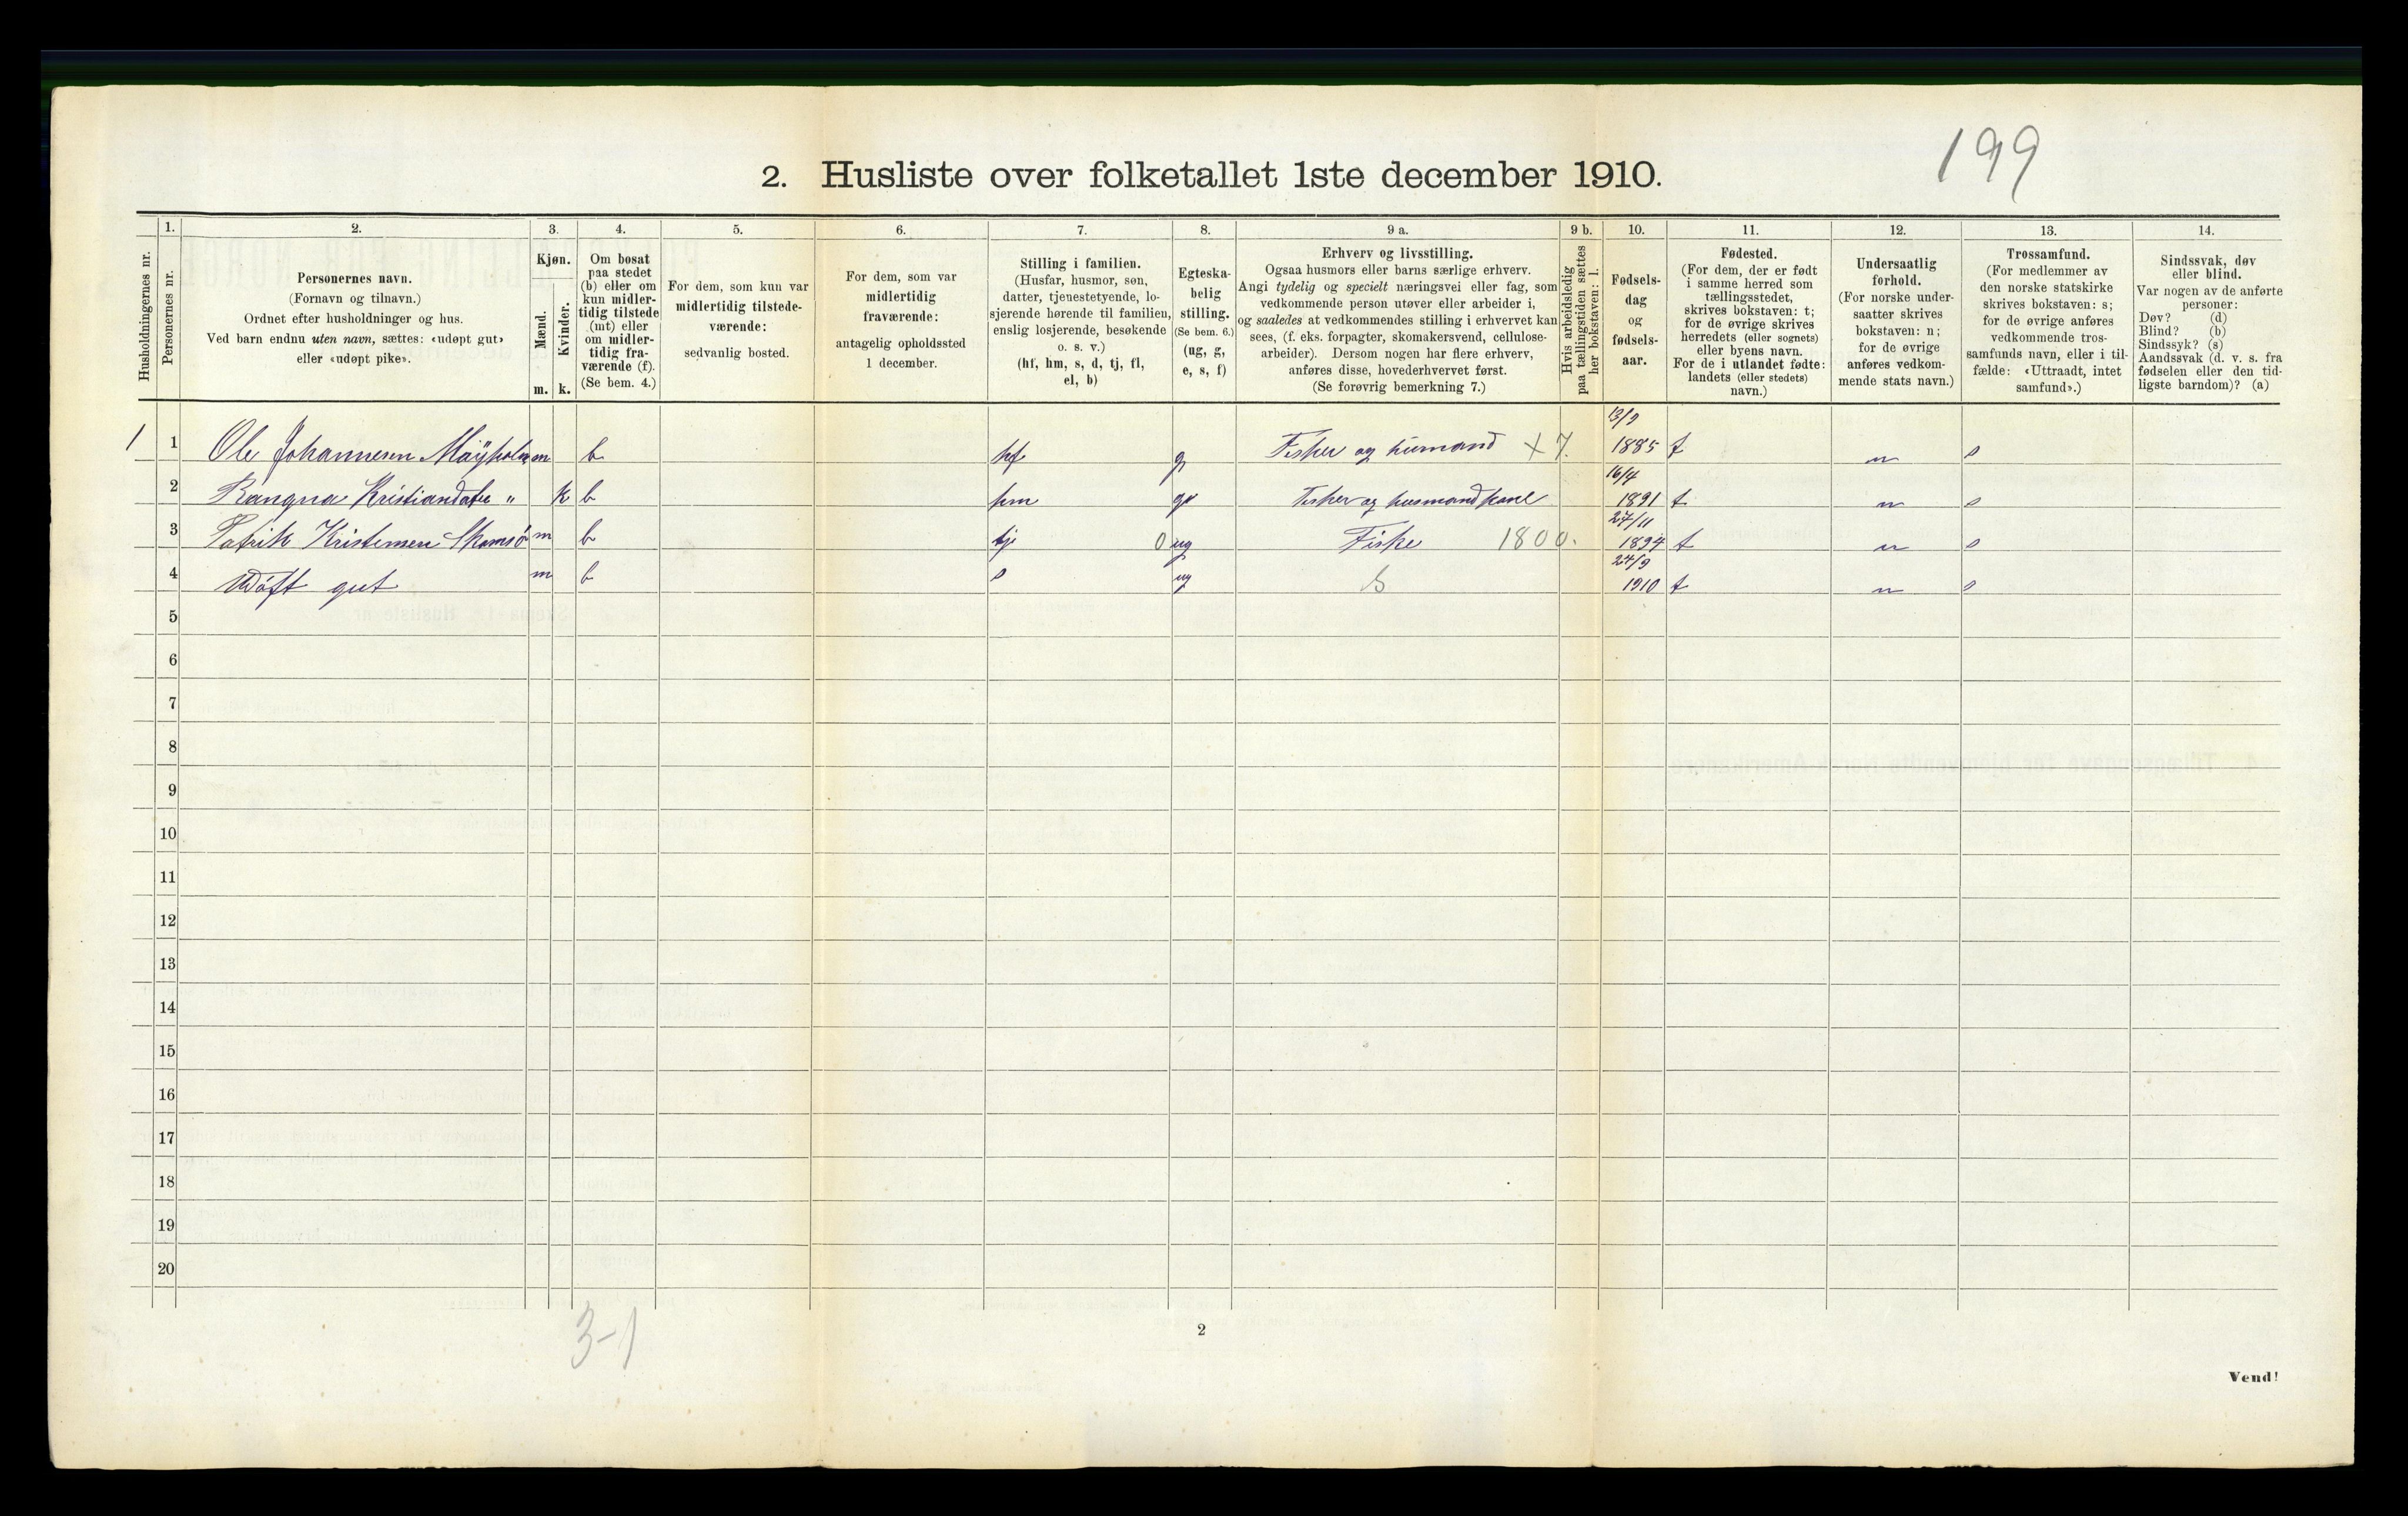 199
2. Husliste over folketallet 1ste december 1910.
Husholdningernes nr.
1.
Personernes nr.
2.
Personernes navn.
(Fornavn og tilnavn.)
Ordnet efter husholdninger og hus.
Ved barn endnu uten navn, sættes: «udøpt gut»
eller «udøpt pike».
3.
Kjøn.
Mænd.
Kvinder.
m. k.
4.
Om bosat
paa stedet
(b) eller om
kun midler-
tidig tilstede
(mt) eller
om midler-
tidig fra-
værende (f).
(Se bem. 4.)
5.
For dem, som kun var
midlertidig tilstede-
værende:
sedvanlig bosted.
6.
For dem, som var
midlertidig
fraværende:
antagelig opholdssted
1 december.
7.
Stilling i familien.
(Husfar, husmor, søn,
datter, tjenestetyende, lo-
sjerende hørende til familien,
enslig losjerende, besøkende
o. s. v.)
(hf, hm, s, d, tj, fl,
el, b)
8.
Egteska-
belig
stilling.
(Se bem. 6.)
(ug, g,
e, s, f)
9 a.
Erhverv og livsstilling.
Ogsaa husmors eller barns særlige erhverv.
Angi tydelig og specielt næringsvei eller fag, som
vedkommende person utøver eller arbeider i,
og saaledes at vedkommendes stilling i erhvervet kan
sees, (f. eks. forpagter, skomakersvend, cellulose-
arbeider). Dersom nogen har flere erhverv,
anføres disse, hovederhvervet først.
(Se forøvrig bemerkning 7.)
9 b.
Hvis arbeidsledig
paa tællingstiden sættes
her bokstaven: l.
10.
Fødsels-
dag
og
fødsels-
aar.
11.
Fødested.
(For dem, der er født
i samme herred som
tællingsstedet,
skrives bokstaven: t;
for de øvrige skrives
herredets (eller sognets)
eller byens navn.
For de i utlandet fødte:
landets (eller stedets)
navn.)
12.
Undersaatlig
forhold.
(For norske under-
saatter skrives
bokstaven: n;
for de øvrige
anføres vedkom-
mende stats navn.)
13.
Trossamfund.
(For medlemmer av
den norske statskirke
skrives bokstaven: s;
for de øvrige anføres
vedkommende tros-
samfunds navn, eller i til-
fælde: «Uttraadt, intet
samfund».)
14.
Sindssvak, døv
eller blind.
Var nogen av de anførte
personer:
Døv? (d)
Blind? (b)
Sindssyk? (s)
Aandssvak (d. v. s. fra
fødselen eller den tid-
ligste barndom)? (a)
1 1 Ole Johannesen Møyholm m b hf g Fisker og husmand x 7. 13/9 1885 t n s
2 Rangna Kristiandatter " k b hm g Fisker og husmandkone 16/4 1891 t n s
3 Patrik Kristensen m b tj 0 ug Fiske 1800. 27/11 1894 t n s
4 Udøft gut m b s ug 24/9 1910 t n s
5
6
7
8
9
10
11
12
13
14
15
16
17
18
19
20
3-1
2
Vend!